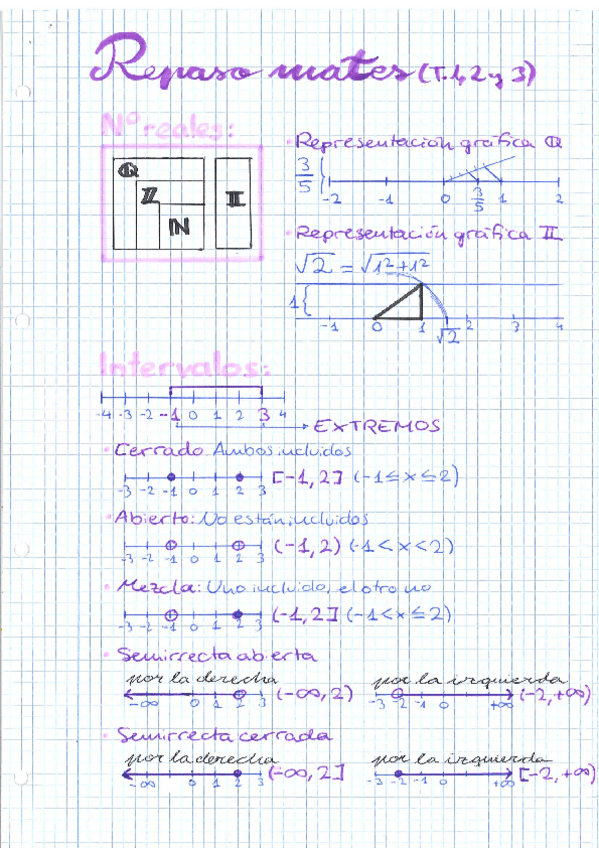 Repaso mates (T.1, 2 y 3)
Nº reales:
ℚ
ℤ
ℕ
𝕀
Representación gráfica ℚ
3/5
-2 -1 0 3/5 1 2
Representación gráfica 𝕀
√2 = √1²+1²
1
-1 0 1 √2 2 3 4
Intervalos:
-4 -3 -2 -1 0 1 2 3 4
EXTREMOS
Cerrado: Ambos incluidos
-3 -2 -1 0 1 2 3 [-1, 2] (-1≤x≤2)
Abierto: No están incluidos
-3 -2 -1 0 1 2 3 (-1, 2) (-1<x<2)
Mezcla: Uno incluido, el otro no
-3 -2 -1 0 1 2 3 (-1, 2] (-1<x≤2)
Semirrecta abierta
por la derecha
-∞ 0 1 2 3 (-∞, 2)
por la izquierda
-3 -2 -1 0 +∞ (-2, +∞)
Semirrecta cerrada
por la derecha
-∞ 0 1 2 3 (-∞, 2]
por la izquierda
-3 -2 -1 0 +∞ [-2, +∞)